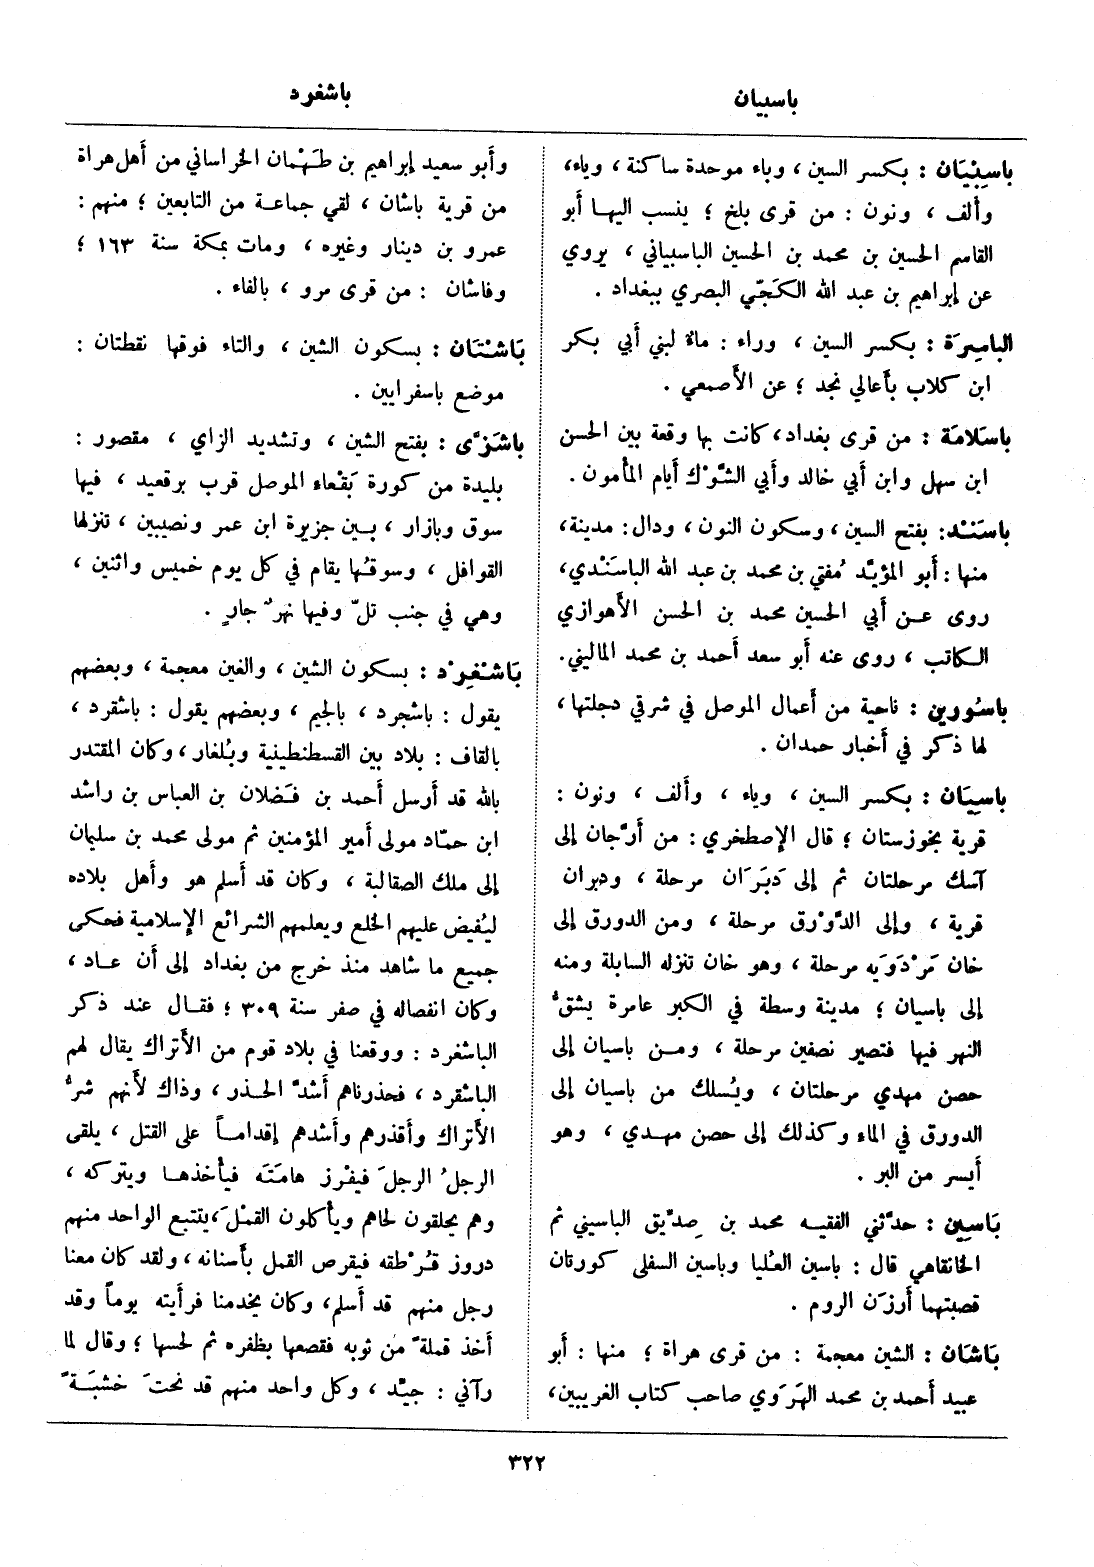 باسبيان
باشغرد
باسِبْيَان : بكسر السين ، وباء موحدة ساكنة ، وياء،
وألف ، ونون : من قرى بلخ ؛ ينسب اليها أبو
القاسم الحسين بن محمد بن الحسين الباسبياني ، يروي
عن إبراهيم بن عبد الله الكَجّي البصري ببغداد .
الباسِرَة : بكسر السين ، وراء : ماءٌ لبني أبي بكر
ابن كلاب بأعالي نجد ؛ عن الأصمعي .
باسَلامَة : من قرى بغداد، كانت بها وقعة بين الحسن
ابن سهل وابن أبي خالد وأبي الشَّوْك أيام المأمون .
باسَنْد: بفتح السين ، وسكون النون ، ودال : مدينة،
منها : أبو المؤيّد مُفتي بن محمد بن عبد الله الباسَنْدي،
روى عن أبي الحسين محمد بن الحسن الأهوازي
الكاتب ، روى عنه أبو سعد أحمد بن محمد الماليني.
باسُورين : ناحية من أعمال الموصل في شرقي دجلتها ،
لها ذكر في أخبار حمدان .
باسِيَان : بكسر السين ، وياء ، وألف ، ونون :
قرية بخوزستان ؛ قال الإصطخري : من أرَّجان إلى
آسك مرحلتان ثم إلى دَبَرَان مرحلة ، ودبران
قرية ، وإلى الدَّوْرق مرحلة ، ومن الدورق إلى
خان مَرْدَوَيه مرحلة ، وهو خان تنزله السابلة ومنه
إلى باسيان ؛ مدينة وسطة في الكبر عامرة يشقُّ
النهر فيها فتصير نصفين مرحلة ، ومن باسيان إلى
حصن مهدي مرحلتان ، ويُسلك من باسيان إلى
الدورق في الماء وكذلك إلى حصن مهدي ، وهو
أيسر من البر .
بَاسِين : حدّثني الفقيه محمد بن صِدّيق الباسيني ثم
الخانقاهي قال : باسين العُليا وباسين السفلى كورتان
قصبتهما أَرزَن الروم .
بَاشَان : الشين معجمة : من قرى هراة ؛ منها : أبو
عبيد أحمد بن محمد الهَرَوي صاحب كتاب الغريبين،
وأبو سعيد إبراهيم بن طَهْمان الخراساني من أهل هراة
من قرية باشان ، لقي جماعة من التابعين ؛ منهم :
عمرو بن دينار وغيره ، ومات بمكة سنة ١٦٣ ؛
وفاشان : من قرى مرو ، بالفاء .
بَاشْتَان : بسكون الشين ، والتاء فوقها نقطتان :
موضع باسفرايين .
باشَزَّى : بفتح الشين ، وتشديد الزاي ، مقصور :
بليدة من كورة بَقْعاء الموصل قرب برقعيد ، فيها
سوق وبازار ، بين جزيرة ابن عمر ونصيبين ، تنزلها
القوافل ، وسوقُها يقام في كل يوم خميس واثنين ،
وهي في جنب تلّ وفيها نهرٌ جارٍ .
بَاشْغِرْد : بسكون الشين ، والغين معجمة ، وبعضهم
يقول : باشجرد ، بالجيم ، وبعضهم يقول : باشقرد ،
بالقاف : بلاد بين القسطنطينية وبُلغار ، وكان المقتدر
بالله قد أرسل أحمد بن فَضلان بن العباس بن راشد
ابن حمّاد مولى أمير المؤمنين ثم مولى محمد بن سليمان
إلى ملك الصقالبة ، وكان قد أسلم هو وأهل بلاده
ليُفيض عليهم الخلع ويعلمهم الشرائع الإسلامية فحكى
جميع ما شاهد منذ خرج من بغداد إلى أن عاد ،
وكان انفصاله في صفر سنة ٣٠٩ ؛ فقال عند ذكر
الباشغرد : ووقعنا في بلاد قوم من الأتراك يقال لهم
الباشقرد ، فحذرناهم أشدَّ الحذر ، وذاك لأنهم شرُّ
الأتراك وأقذرهم وأشدهم إقداماً على القتل ، يلقى
الرجلُ الرجلَ فيفْرز هامَتَه فيأخذها ويتركه ،
وهم يحلقون لحاهم ويأكلون القمْلَ، يتتبع الواحد منهم
دروز قُرْطقه فيقرص القمل بأسنانه ، ولقد كان معنا
رجل منهم قد أسلم، وكان يخدمنا فرأيته يوماً وقد
أخذ قملةً من ثوبه فقصعها بظفره ثم لحسها ؛ وقال لما
رآني : جيّد ، وكل واحد منهم قد نحتَ خشبَةً
٣٢٢